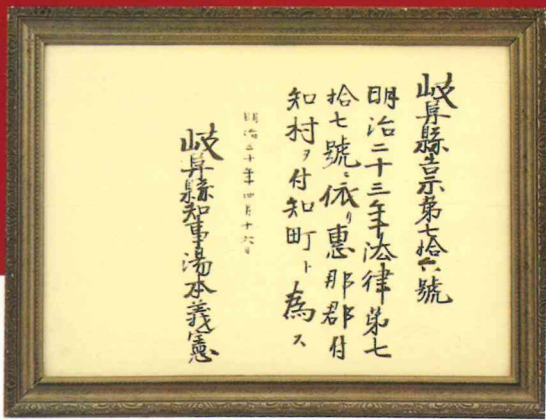 岐阜縣告示第七拾六號
明治二十三年法律第七
拾七號ニ依リ惠那郡付
知村ヲ付知町ト為ス
明治三十年四月十六日
岐阜縣知事湯本義憲